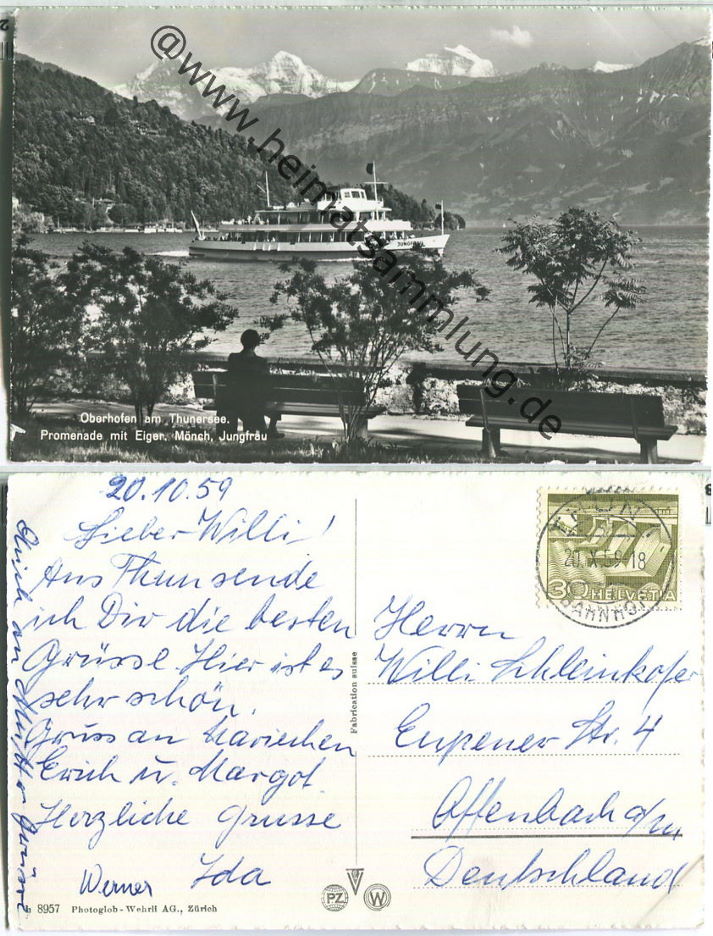 @www.heimatsammlung.de
JUNGFRAU
Oberhofen am Thunersee.
Promenade mit Eiger, Mönch, Jungfrau
20.10.59
Lieber Willi!
Aus Thun sende
ich Dir die besten
Grüsse. Hier ist es
sehr schön.
Gruss an Mariechen
Erich u. Margot.
Herzliche Grüsse
Werner Ida
8957 Photoglob-Wehrli AG., Zürich
Fabrication suisse
PZ V W
THUN
20.X.59-18
BAHNHOF
30 HELVETIA
Herrn
Willi Schleinkofer
Eupener Str. 4
Offenbach a/M
Deutschland